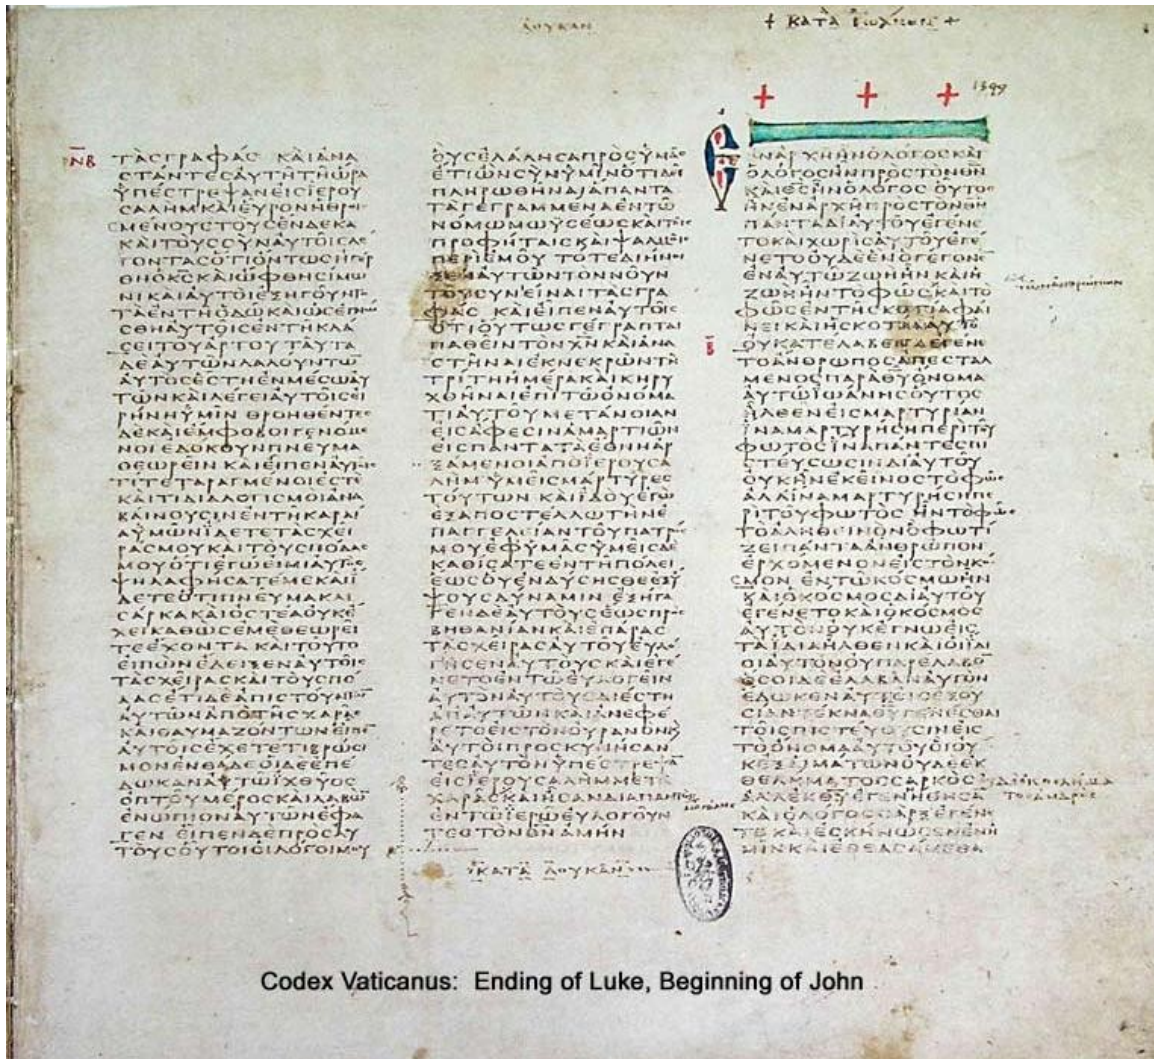 ΛΟΥΚΑΝ
+ ΚΑΤΑ ΙΩΑΝΝΗΝ +
1349
ΝΒ
ΤΑΣΓΡΑΦΑΣ ΚΑΙΑΝΑ
ΣΤΑΝΤΕΣΑΥΤΗΤΗΩΡΑ
ΥΠΕΣΤΡΕΨΑΝΕΙΣΙΕΡΟΥ
ΣΑΛΗΜΚΑΙΕΥΡΟΝΗΘΡΟΙ
ΣΜΕΝΟΥΣΤΟΥΣΕΝΔΕΚΑ
ΚΑΙΤΟΥΣΣΥΝΑΥΤΟΙΣΛΕ
ΓΟΝΤΑΣΟΤΙΟΝΤΩΣΗΓΕΡ
ΘΗΟΚΣΚΑΙΩΦΘΗΣΙΜΩ
ΝΙΚΑΙΑΥΤΟΙΕΞΗΓΟΥΝΤΟ
ΤΑΕΝΤΗΟΔΩΚΑΙΩΣΕΓΝΩ
ΣΘΗΑΥΤΟΙΣΕΝΤΗΚΛΑ
ΣΕΙΤΟΥΑΡΤΟΥΤΑΥΤΑ
ΔΕΑΥΤΩΝΛΑΛΟΥΝΤΩ
ΑΥΤΟΣΕΣΤΗΕΝΜΕΣΩΑΥ
ΤΩΝΚΑΙΛΕΓΕΙΑΥΤΟΙΣΕΙ
ΡΗΝΗΥΜΙΝ ΘΡΟΗΘΕΝΤΕΣ
ΔΕΚΑΙΕΜΦΟΒΟΙΓΕΝΟΜΕ
ΝΟΙΕΔΟΚΟΥΝΠΝΕΥΜΑ
ΘΕΩΡΕΙΝ ΚΑΙΕΙΠΕΝΑΥΤΟΙΣ
ΤΙΤΕΤΑΡΑΓΜΕΝΟΙΕΣΤΕ
ΚΑΙΤΙΔΙΑΛΟΓΙΣΜΟΙΑΝΑ
ΒΑΙΝΟΥΣΙΝΕΝΤΗΚΑΡΔΙ
ΑΥΜΩΝΙΔΕΤΕΤΑΣΧΕΙ
ΡΑΣΜΟΥΚΑΙΤΟΥΣΠΟΔΑΣ
ΜΟΥΟΤΙΕΓΩΕΙΜΙΑΥΤΟΣ
ΨΗΛΑΦΗΣΑΤΕΜΕΚΑΙΙ
ΔΕΤΕΟΤΙΠΝΕΥΜΑΚΑΙ
ΣΑΡΚΑΚΑΙΟΣΤΕΑΟΥΚΕ
ΧΕΙΚΑΘΩΣΕΜΕΘΕΩΡΕΙ
ΤΕΕΧΟΝΤΑ ΚΑΙΤΟΥΤΟ
ΕΙΠΩΝΕΔΕΙΞΕΝΑΥΤΟΙΣ
ΤΑΣΧΕΙΡΑΣΚΑΙΤΟΥΣΠΟ
ΔΑΣΕΤΙΔΕΑΠΙΣΤΟΥΝΤΩ
ΑΥΤΩΝΑΠΟΤΗΣΧΑΡΑΣ
ΚΑΙΘΑΥΜΑΖΟΝΤΩΝΕΙΠΕ
ΑΥΤΟΙΣΕΧΕΤΕΤΙΒΡΩΣΙ
ΜΟΝΕΝΘΑΔΕΟΙΔΕΕΠΕ
ΔΩΚΑΝΑΥΤΩΙΧΘΥΟΣ
ΟΠΤΟΥΜΕΡΟΣΚΑΙΛΑΒΩ
ΕΝΩΠΙΟΝΑΥΤΩΝΕΦΑ
ΓΕΝ ΕΙΠΕΝΔΕΠΡΟΣΑΥ
ΤΟΥΣΟΥΤΟΙΟΙΛΟΓΟΙΜΟΥ
ΟΥΣΕΛΑΛΗΣΑΠΡΟΣΥΜΑΣ
ΕΤΙΩΝΣΥΝΥΜΙΝΟΤΙΔΕΙ
ΠΛΗΡΩΘΗΝΑΙΠΑΝΤΑ
ΤΑΓΕΓΡΑΜΜΕΝΑΕΝΤΩ
ΝΟΜΩΜΩΥΣΕΩΣΚΑΙΤΟΙΣ
ΠΡΟΦΗΤΑΙΣΚΑΙΨΑΛΜΟΙΣ
ΠΕΡΙΕΜΟΥ ΤΟΤΕΔΙΗΝΟΙ
ΞΕΝΑΥΤΩΝΤΟΝΝΟΥΝ
ΤΟΥΣΥΝΕΙΝΑΙΤΑΣΓΡΑ
ΦΑΣ ΚΑΙΕΙΠΕΝΑΥΤΟΙΣ
ΟΤΙΟΥΤΩΣΓΕΓΡΑΠΤΑΙ
ΠΑΘΕΙΝΤΟΝΧΝΚΑΙΑΝΑ
ΣΤΗΝΑΙΕΚΝΕΚΡΩΝΤΗ
ΤΡΙΤΗΗΜΕΡΑΚΑΙΚΗΡΥ
ΧΘΗΝΑΙΕΠΙΤΩΟΝΟΜΑ
ΤΙΑΥΤΟΥΜΕΤΑΝΟΙΑΝ
ΕΙΣΑΦΕΣΙΝΑΜΑΡΤΙΩΝ
ΕΙΣΠΑΝΤΑΤΑΕΘΝΗΑΡ
ΞΑΜΕΝΟΙΑΠΟΙΕΡΟΥΣΑ
ΛΗΜ ΥΜΕΙΣΜΑΡΤΥΡΕΣ
ΤΟΥΤΩΝ ΚΑΙΙΔΟΥΕΓΩ
ΕΞΑΠΟΣΤΕΛΛΩΤΗΝΕ
ΠΑΓΓΕΛΕΙΑΝΤΟΥΠΑΤΡΟΣ
ΜΟΥΕΦΥΜΑΣΥΜΕΙΣΔΕ
ΚΑΘΙΣΑΤΕΕΝΤΗΠΟΛΕΙ
ΕΩΣΟΥΕΝΔΥΣΗΣΘΕΕΞΥ
ΨΟΥΣΔΥΝΑΜΙΝ ΕΞΗΓΑ
ΓΕΝΔΕΑΥΤΟΥΣΕΩΣΠΡΟΣ
ΒΗΘΑΝΙΑΝΚΑΙΕΠΑΡΑΣ
ΤΑΣΧΕΙΡΑΣΑΥΤΟΥΕΥΛΟ
ΓΗΣΕΝΑΥΤΟΥΣΚΑΙΕΓΕ
ΝΕΤΟΕΝΤΩΕΥΛΟΓΕΙΝ
ΑΥΤΟΝΑΥΤΟΥΣΔΙΕΣΤΗ
ΑΠΑΥΤΩΝΚΑΙΑΝΕΦΕ
ΡΕΤΟΕΙΣΤΟΝΟΥΡΑΝΟΝΚ
ΑΥΤΟΙΠΡΟΣΚΥΝΗΣΑΝ
ΤΕΣΑΥΤΟΝΥΠΕΣΤΡΕΨΑ
ΕΙΣΙΕΡΟΥΣΑΛΗΜΜΕΤΑ
ΧΑΡΑΣΚΑΙΗΣΑΝΔΙΑΠΑΝΤΟΣ
ΕΝΤΩΙΕΡΩΕΥΛΟΓΟΥΝ
ΤΕΣΤΟΝΘΝΑΜΗΝ
ΚΑΤΑ ΛΟΥΚΑΝ
ΕΝΑΡΧΗΗΝΟΛΟΓΟΣΚΑΙ
ΟΛΟΓΟΣΗΝΠΡΟΣΤΟΝΘΝ
ΚΑΙΘΣΗΝΟΛΟΓΟΣ ΟΥΤΟΣ
ΗΝΕΝΑΡΧΗΠΡΟΣΤΟΝΘΝ
ΠΑΝΤΑΔΙΑΥΤΟΥΕΓΕΝΕ
ΤΟΚΑΙΧΩΡΙΣΑΥΤΟΥΕΓΕ
ΝΕΤΟΟΥΔΕΕΝΟΓΕΓΟΝΕ
ΕΝΑΥΤΩΖΩΗΗΝΚΑΙΗ
ΖΩΗΗΝΤΟΦΩΣΚΑΙΤΟ
ΤΩΝΑΝΘΡΩΠΩΝ
ΦΩΣΕΝΤΗΣΚΟΤΙΑΦΑΙ
ΝΕΙΚΑΙΗΣΚΟΤΙΑΑΥΤΟ
Β
ΟΥΚΑΤΕΛΑΒΕΝΕΓΕΝΕ
ΤΟΑΝΘΡΩΠΟΣΑΠΕΣΤΑΛ
ΜΕΝΟΣΠΑΡΑΘΥΟΝΟΜΑ
ΑΥΤΩΙΩΑΝΗΣΟΥΤΟΣ
ΗΛΘΕΝΕΙΣΜΑΡΤΥΡΙΑΝ
ΙΝΑΜΑΡΤΥΡΗΣΗΠΕΡΙΤΟΥ
ΦΩΤΟΣΙΝΑΠΑΝΤΕΣΠΙ
ΣΤΕΥΣΩΣΙΝΔΙΑΥΤΟΥ
ΟΥΚΗΝΕΚΕΙΝΟΣΤΟΦΩΣ
ΑΛΛΙΝΑΜΑΡΤΥΡΗΣΗΠΕ
ΡΙΤΟΥΦΩΤΟΣ ΗΝΤΟΦΩΣ
ΤΟΑΛΗΘΕΙΝΟΝΟΦΩΤΙ
ΖΕΙΠΑΝΤΑΑΝΘΡΩΠΟΝ
ΕΡΧΟΜΕΝΟΝΕΙΣΤΟΝΚΟ
ΣΜΟΝ ΕΝΤΩΚΟΣΜΩΗΝ
ΚΑΙΟΚΟΣΜΟΣΔΙΑΥΤΟΥ
ΕΓΕΝΕΤΟΚΑΙΟΚΟΣΜΟΣ
ΑΥΤΟΝΟΥΚΕΓΝΩΕΙΣ
ΤΑΙΔΙΑΗΛΘΕΝΚΑΙΟΙΙΔΙ
ΟΙΑΥΤΟΝΟΥΠΑΡΕΛΑΒΟ
ΟΣΟΙΔΕΕΛΑΒΑΝΑΥΤΟΝ
ΕΔΩΚΕΝΑΥΤΟΙΣΕΞΟΥ
ΣΙΑΝΤΕΚΝΑΘΥΓΕΝΕΣΘΑΙ
ΤΟΙΣΠΙΣΤΕΥΟΥΣΙΝΕΙΣ
ΤΟΟΝΟΜΑΑΥΤΟΥΟΙΟΥ
ΚΕΞΑΙΜΑΤΩΝΟΥΔΕΕΚ
ΘΕΛΗΜΑΤΟΣΣΑΡΚΟΣ
ΟΥΔΕΕΚΘΕΛΗΜΑ
ΤΟΣΑΝΔΡΟΣ
ΑΛΛΕΚΘΥΕΓΕΝΗΘΗΣΑ
ΚΑΙΟΛΟΓΟΣΣΑΡΞΕΓΕΝΕ
ΤΟ ΚΑΙΕΣΚΗΝΩΣΕΝΕΝΗ
ΜΙΝΚΑΙΕΘΕΑΣΑΜΕΘΑ
Codex Vaticanus: Ending of Luke, Beginning of John